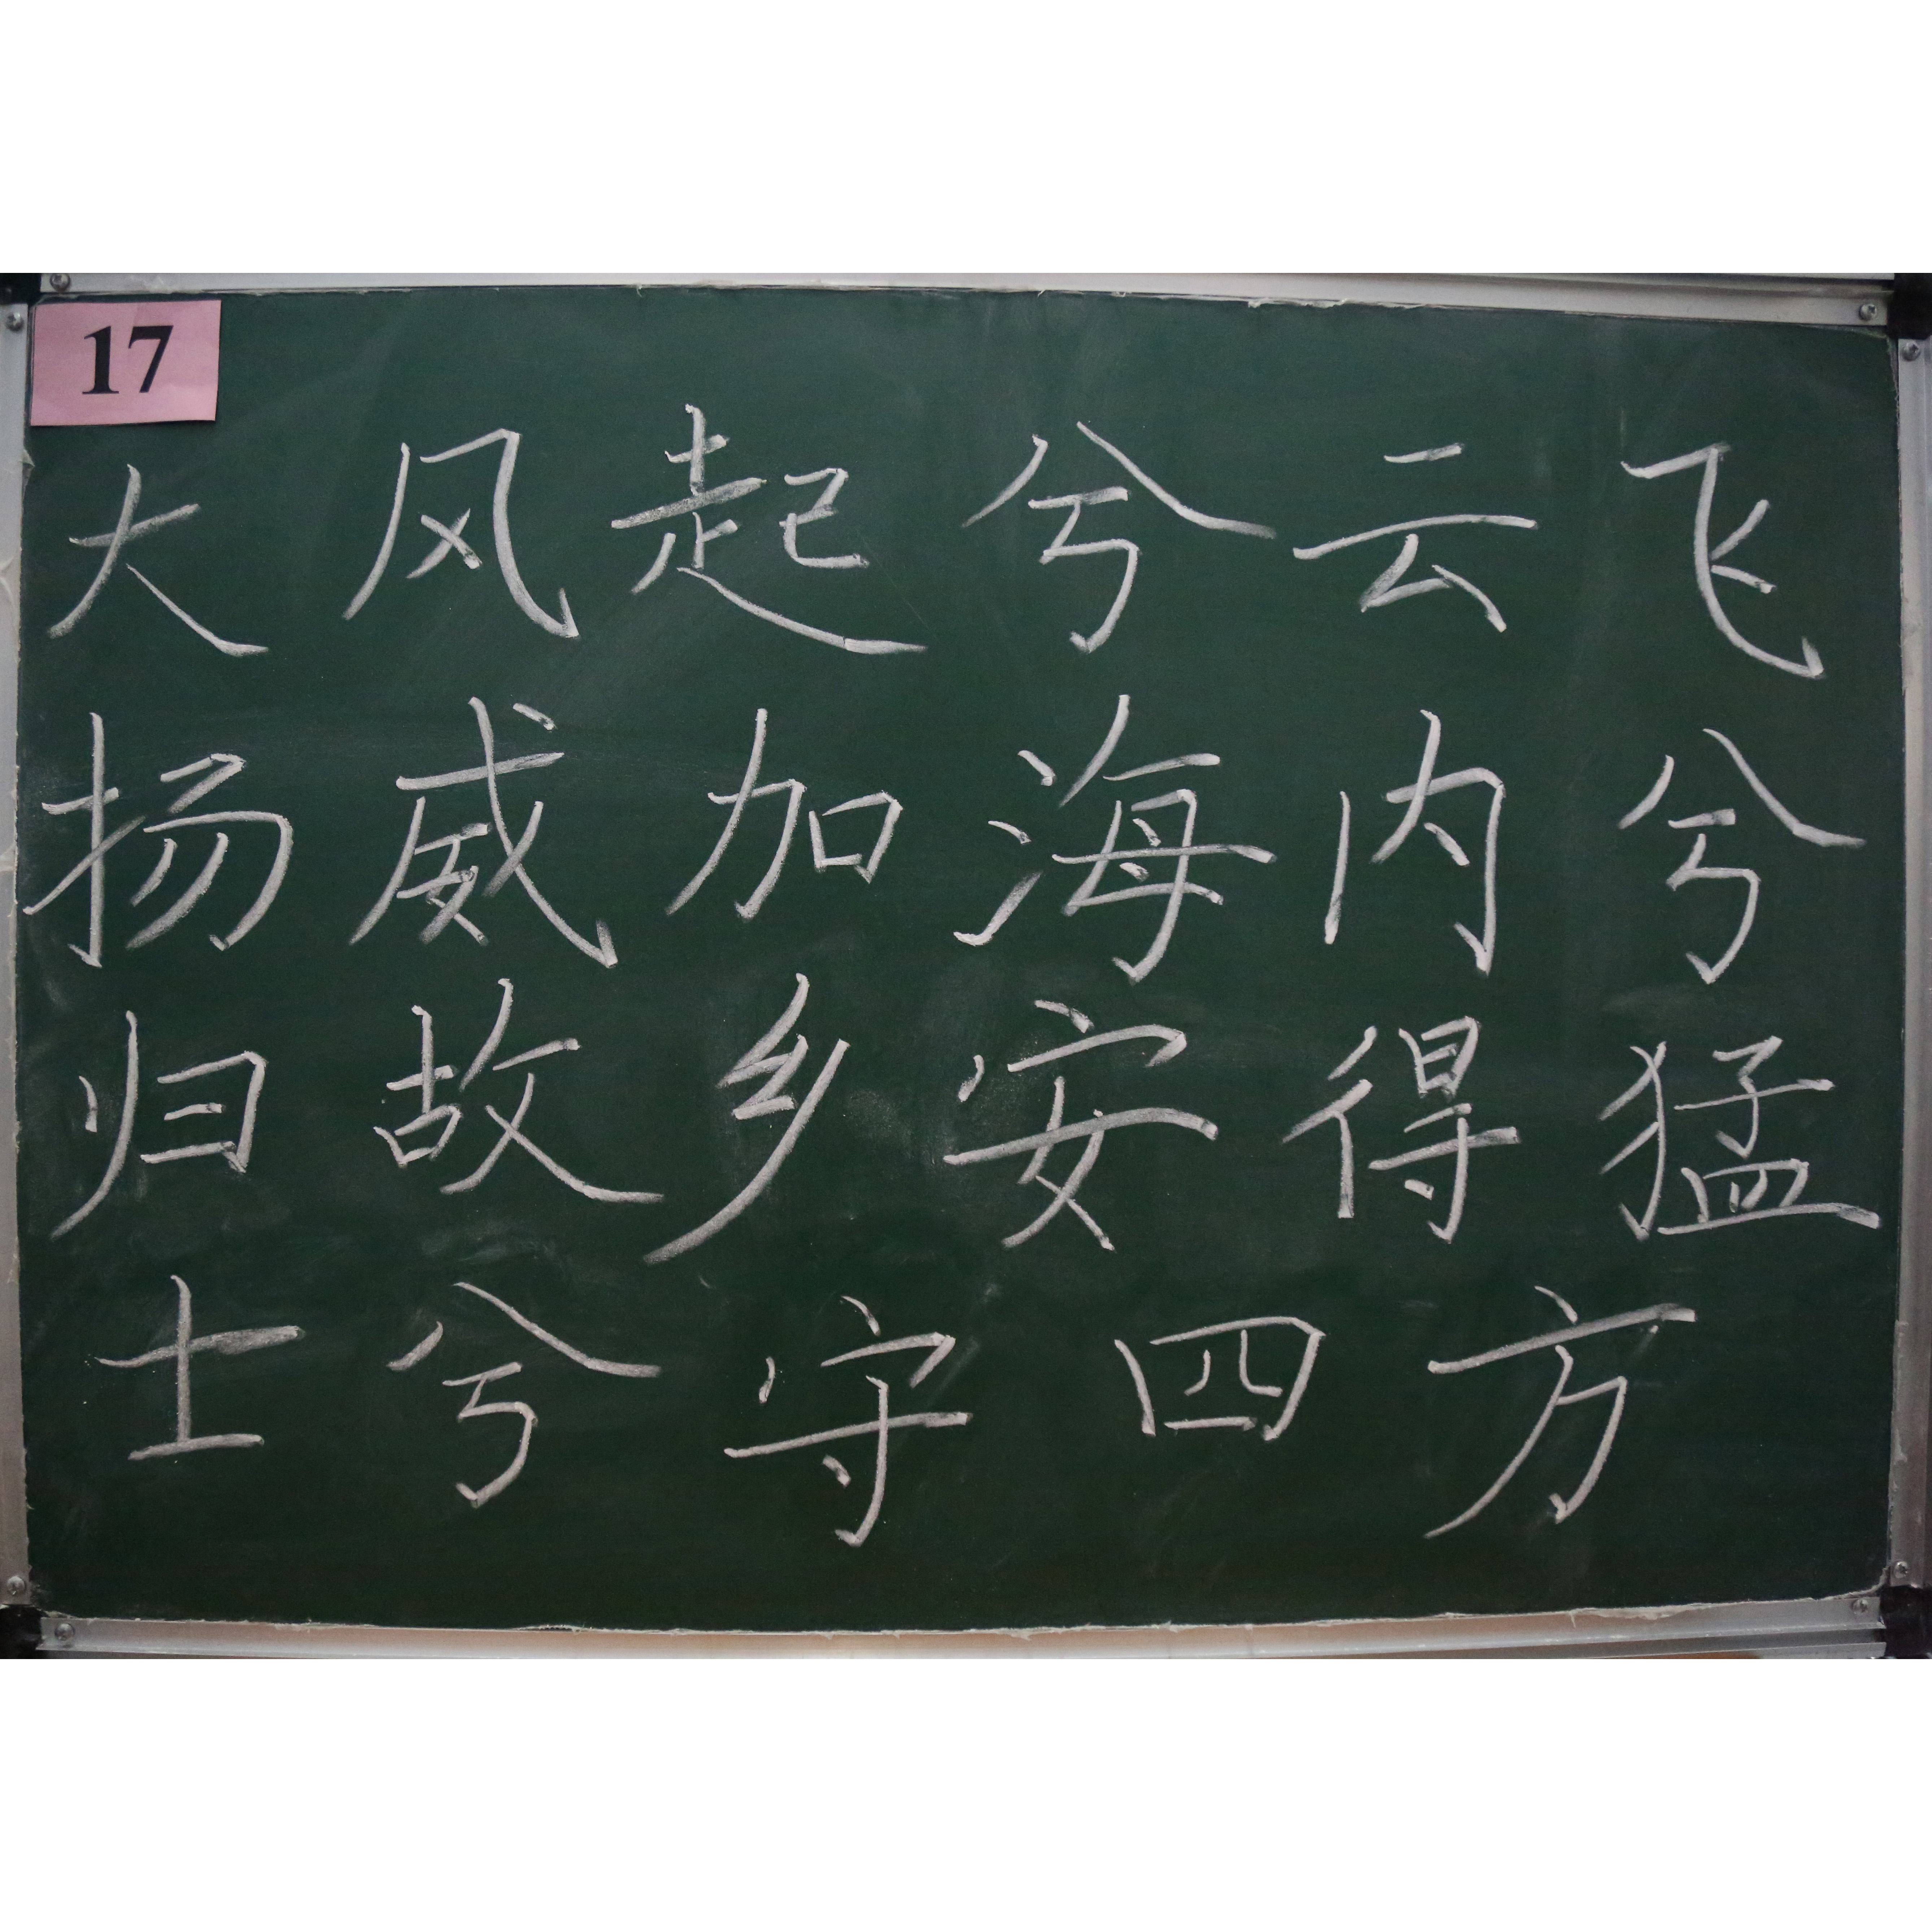 17
大风起兮云飞
扬威加海内兮
归故乡安得猛
士兮守四方